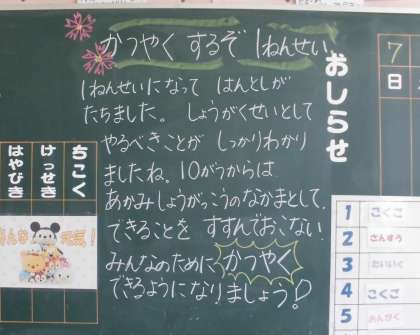 かつやく するぞ 1ねんせい
おしらせ
1ねんせいになって はんとしが
たちました。しょうがくせいとして
やるべきことが しっかりわかり
ましたね。10がつからは
あかみしょうがっこうのなかまとして、
できることを すすんでおこない、
みんなのために、かつやく
できるようになりましょう!
7
日
ちこく
けっせき
はやびき
みんな 元気!
1 こくご
2 さんすう
3 たいいく
4 こくご
5